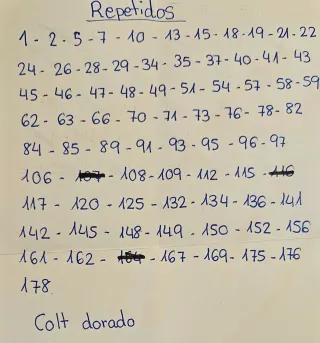 Repetidos
1 - 2 - 5 - 7 - 10 - 13 - 15 - 18 - 19 - 21 - 22
24 - 26 - 28 - 29 - 34 - 35 - 37 - 40 - 41 - 43
45 - 46 - 47 - 48 - 49 - 51 - 54 - 57 - 58 - 59
62 - 63 - 66 - 70 - 71 - 73 - 76 - 78 - 82
84 - 85 - 89 - 91 - 93 - 95 - 96 - 97
106 - 107 - 108 - 109 - 112 - 115 - 116
117 - 120 - 125 - 132 - 134 - 136 - 141
142 - 145 - 148 - 149 - 150 - 152 - 156
161 - 162 - 164 - 167 - 169 - 175 - 176
178
Colt dorado